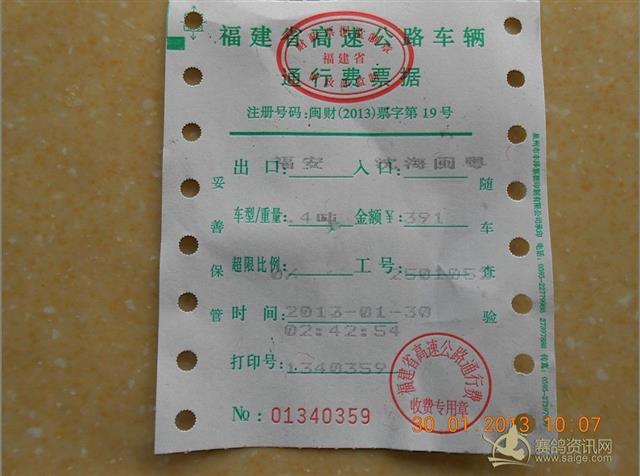 福建省高速公路车辆
福建省
通行费票据
注册号码:闽财(2013)票字第19号
出口: 福安 入口: 沈海闽粤
车型/重量: 4吨 金额¥: 391
超限比例: 0% 工号: 2501051
时间: 2013-01-30
02:42:54
打印号: 1340359
№: 01340359
妥善保管
随车查验
福建省高速公路通行费
收费专用章
30.01.2013 10:07
赛鸽资讯网
www.saige.com